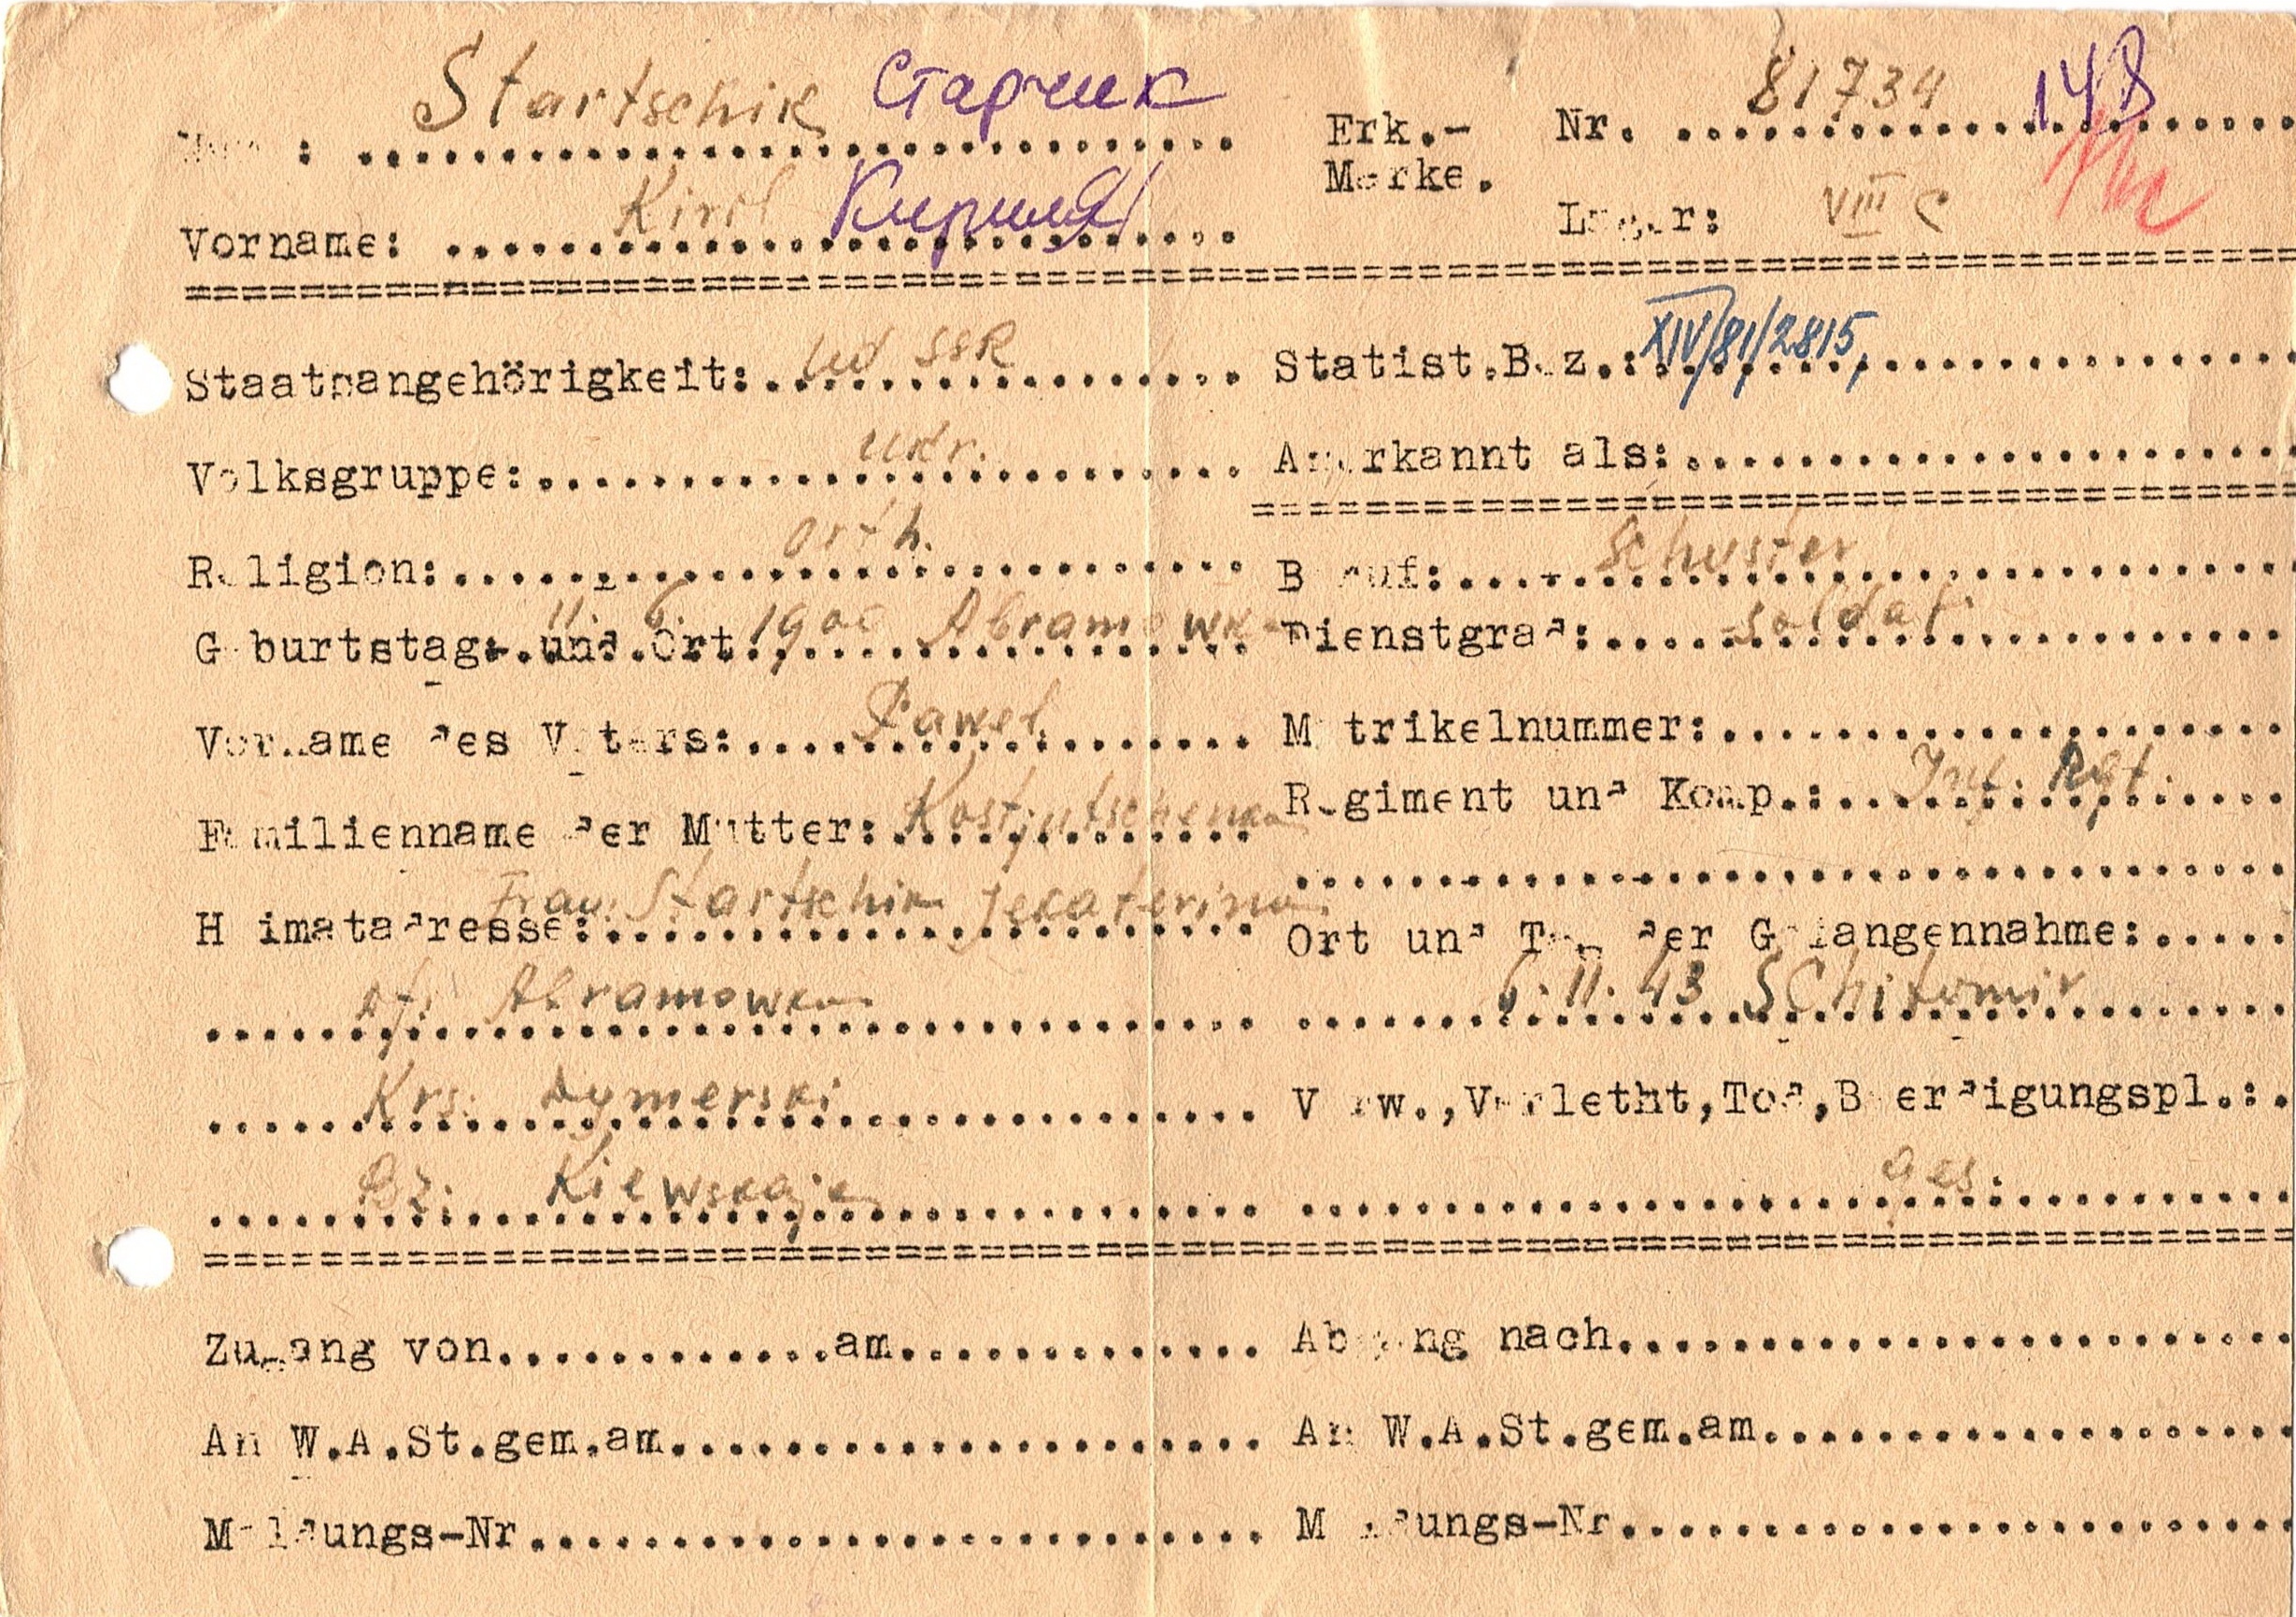 Startschik Старчик
: ..............................
Erk.- Nr. 81734 14В
Marke.
Vorname: Kiril Кирилл
Lager: VIII C
Staatsangehörigkeit: Ud SSR
Statist.Bez.: XIV/81/2815,
Volksgruppe: ukr.
Anerkannt als:
Religion: orth.
Beruf: Schuster
Geburtstag: und Ort 11. 6. 1900 Abramowka
Dienstgrad: Soldat
Vorname des Vaters: Pawel
Matrikelnummer:
Familienname der Mutter: Kostjutschenko
Regiment und Komp.: Inf. Rgt.
Heimatadresse: Frau Startschik Jekaterina
Ort und Tag der Gefangennahme:
Abramowka
6. 11. 43 SChitomir
Krs. Dymerski
Verw.,Verletht,Tod,Beerdigungspl.:
Bz. Kiewskaja
ges.
Zugang von............am.............
Abgang nach
An W.A.St.gem.am
An W.A.St.gem.am
Meldungs-Nr
Meldungs-Nr